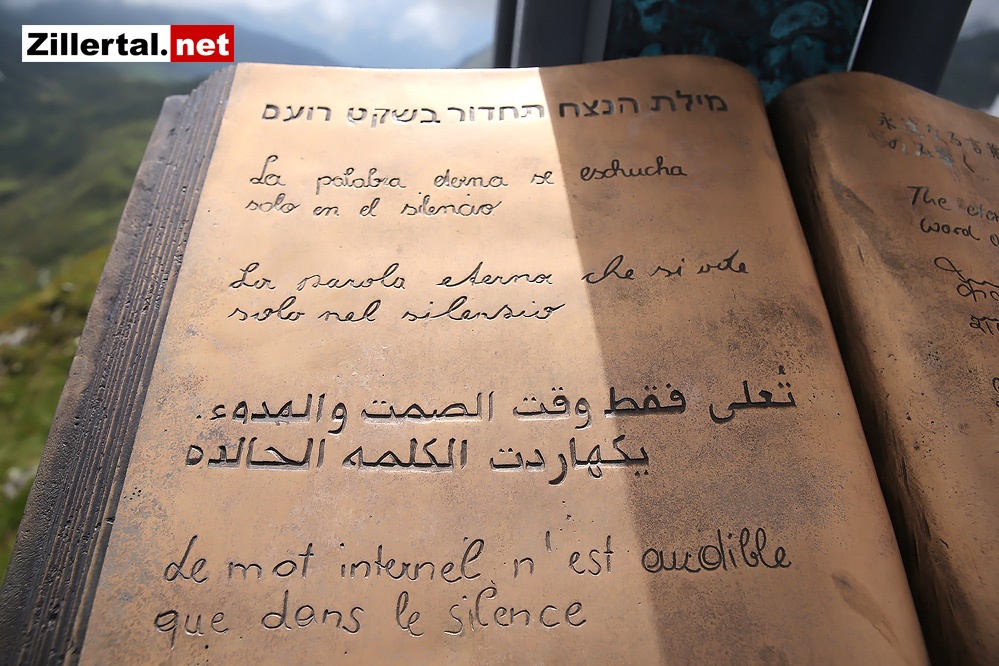 Zillertal.net
מילת הנצח תחדור בשקט רועם
La palabra eterna se eschucha
solo en el silencio
La parola eterna che si ode
solo nel silensio
تُعلى فقط وقت الصمت والهدوء.
يكهاردت الكلمه الحالده
Le mot internel n'est audible
que dans le silence
永遠なる言葉
The
word